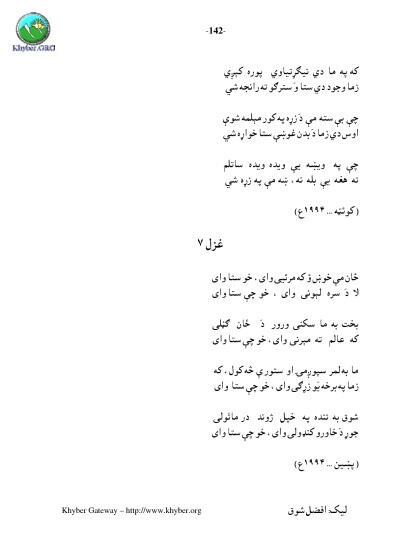 Khyber.ORG
-142-
که په ما دي تيګرتياوي پوره کېږي
زما وجود دي ستا وَ سترګو ته رانجه شي
چې بې سته مې دَ زړه په کور مېلمه شوې
اوس دي زما دَ بدن غوښې ستا خواړه شي
چې په ويښه يې ويده ويده ساتلم
ته هغه يې بله نه، ښه مې په زړه شي
(کوئټه ... ۱۹۹۴ع)
غزل ۷
ځان مې خوښ ؤ که مرئيی وای، خو ستا وای
لا دَ سره لېونی وای ، خو چې ستا وای
بخت به ما سکنی ورور دَ ځان ګڼلی
که عالم ته مېرنی وای، خو چې ستا وای
ما به لمر سپوږمۍ او ستوري څه کول، که
زما په برخه يَو زړګی وای، خو چې ستا وای
شوق به تنده په خپل ژوند در ماتولی
جوړ دَ خاورو کنډولی وای، خو چې ستا وای
(پښين ... ۱۹۹۴ع)
Khyber Gateway – http://www.khyber.org
ليک: افضل شوق